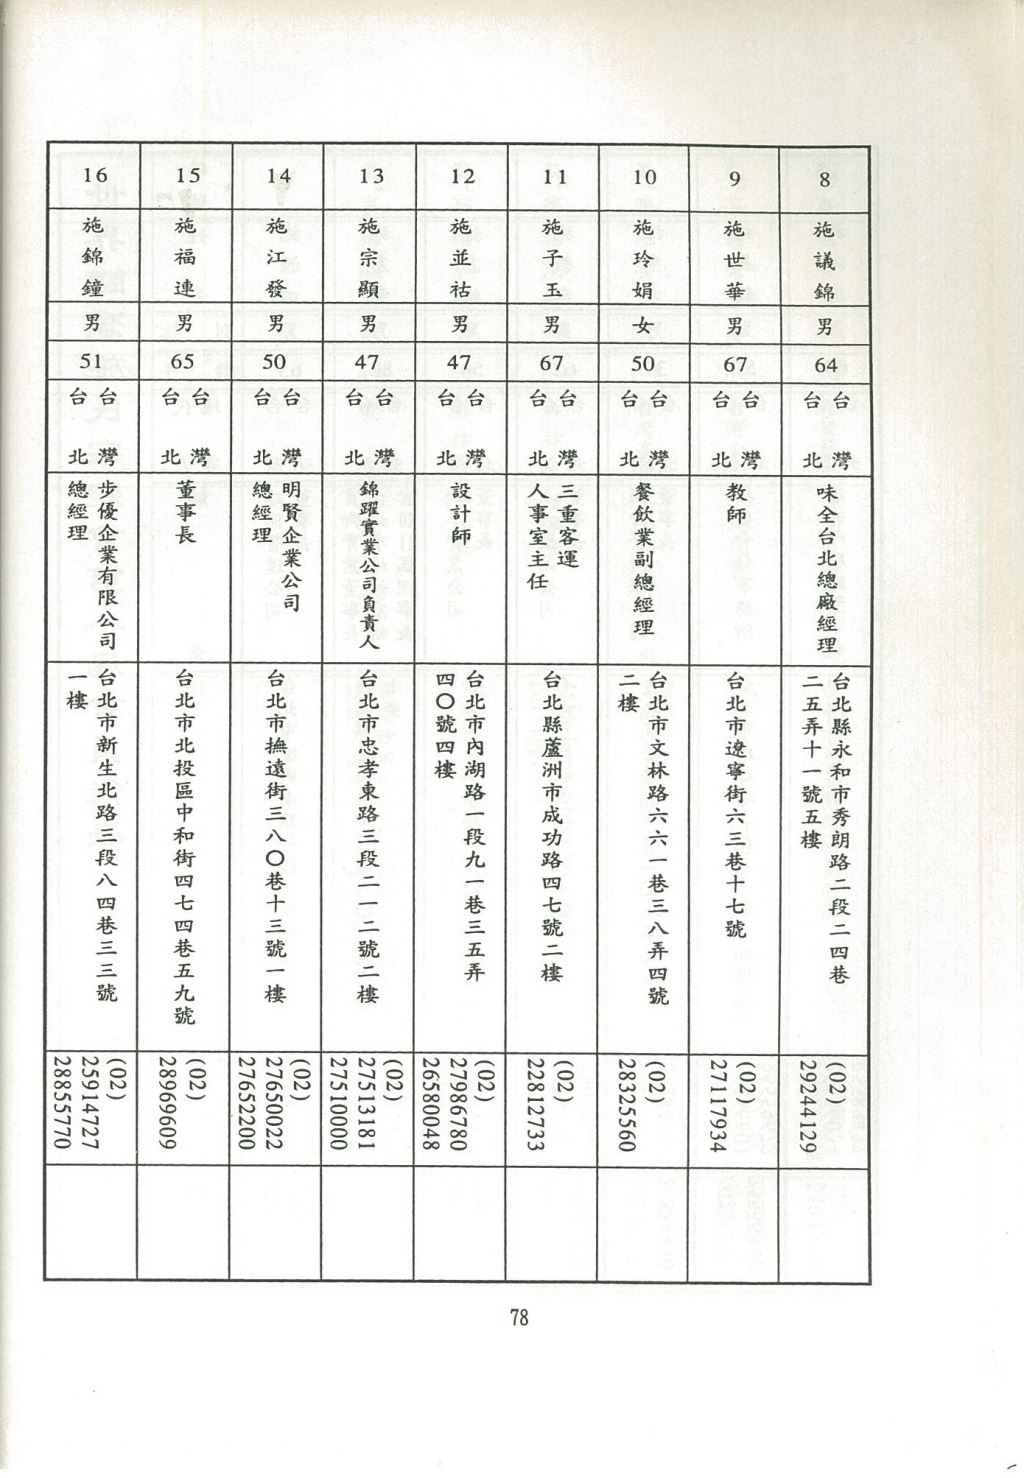 8
施議錦
男
64
台灣
台北
味全台北總廠經理
台北縣永和市秀朗路二段二四巷
二五弄十一號五樓
(02)
29244129
9
施世華
男
67
台灣
台北
教師
台北市遼寧街六三巷十七號
(02)
27117934
10
施玲娟
女
50
台灣
台北
餐飲業副總經理
台北市文林路六六一巷三八弄四號
二樓
(02)
28325560
11
施子玉
男
67
台灣
台北
三重客運
人事室主任
台北縣蘆洲市成功路四七號二樓
(02)
22812733
12
施並祜
男
47
台灣
台北
設計師
台北市內湖路一段九一巷三五弄
四〇號四樓
(02)
27986780
26580048
13
施宗顯
男
47
台灣
台北
錦躍實業公司負責人
台北市忠孝東路三段二一二號二樓
(02)
27513181
27510000
14
施江發
男
50
台灣
台北
明賢企業公司
總經理
台北市撫遠街三八〇巷十三號一樓
(02)
27650022
27652200
15
施福連
男
65
台灣
台北
董事長
台北市北投區中和街四七四巷五九號
(02)
28969609
16
施錦鐘
男
51
台灣
台北
步優企業有限公司
總經理
台北市新生北路三段八四巷三三號
一樓
(02)
25914727
28855770
78